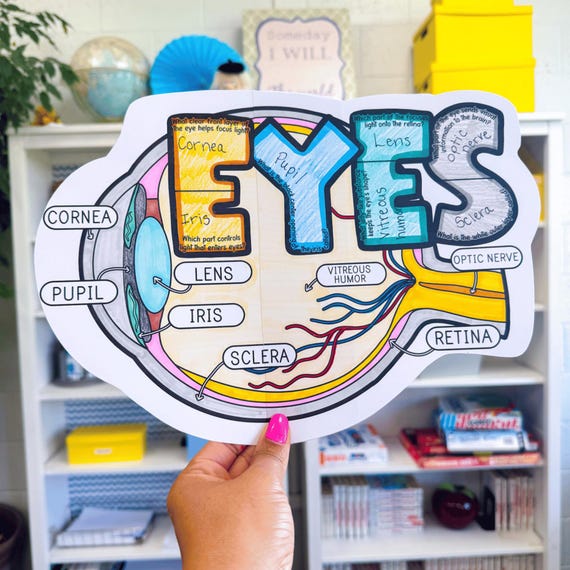 Someday
I WILL
What clear front layer of
the eye helps focus light?
Cornea
Iris
Which part controls
light that enters eyes?
Pupil
Which part of the
light onto the retina?
Lens
keeps the eye's shape?
Vitreous
humor
information to the brain?
Optic
nerve
Sclera
What is the white outer
CORNEA
PUPIL
LENS
IRIS
SCLERA
VITREOUS
HUMOR
OPTIC NERVE
RETINA